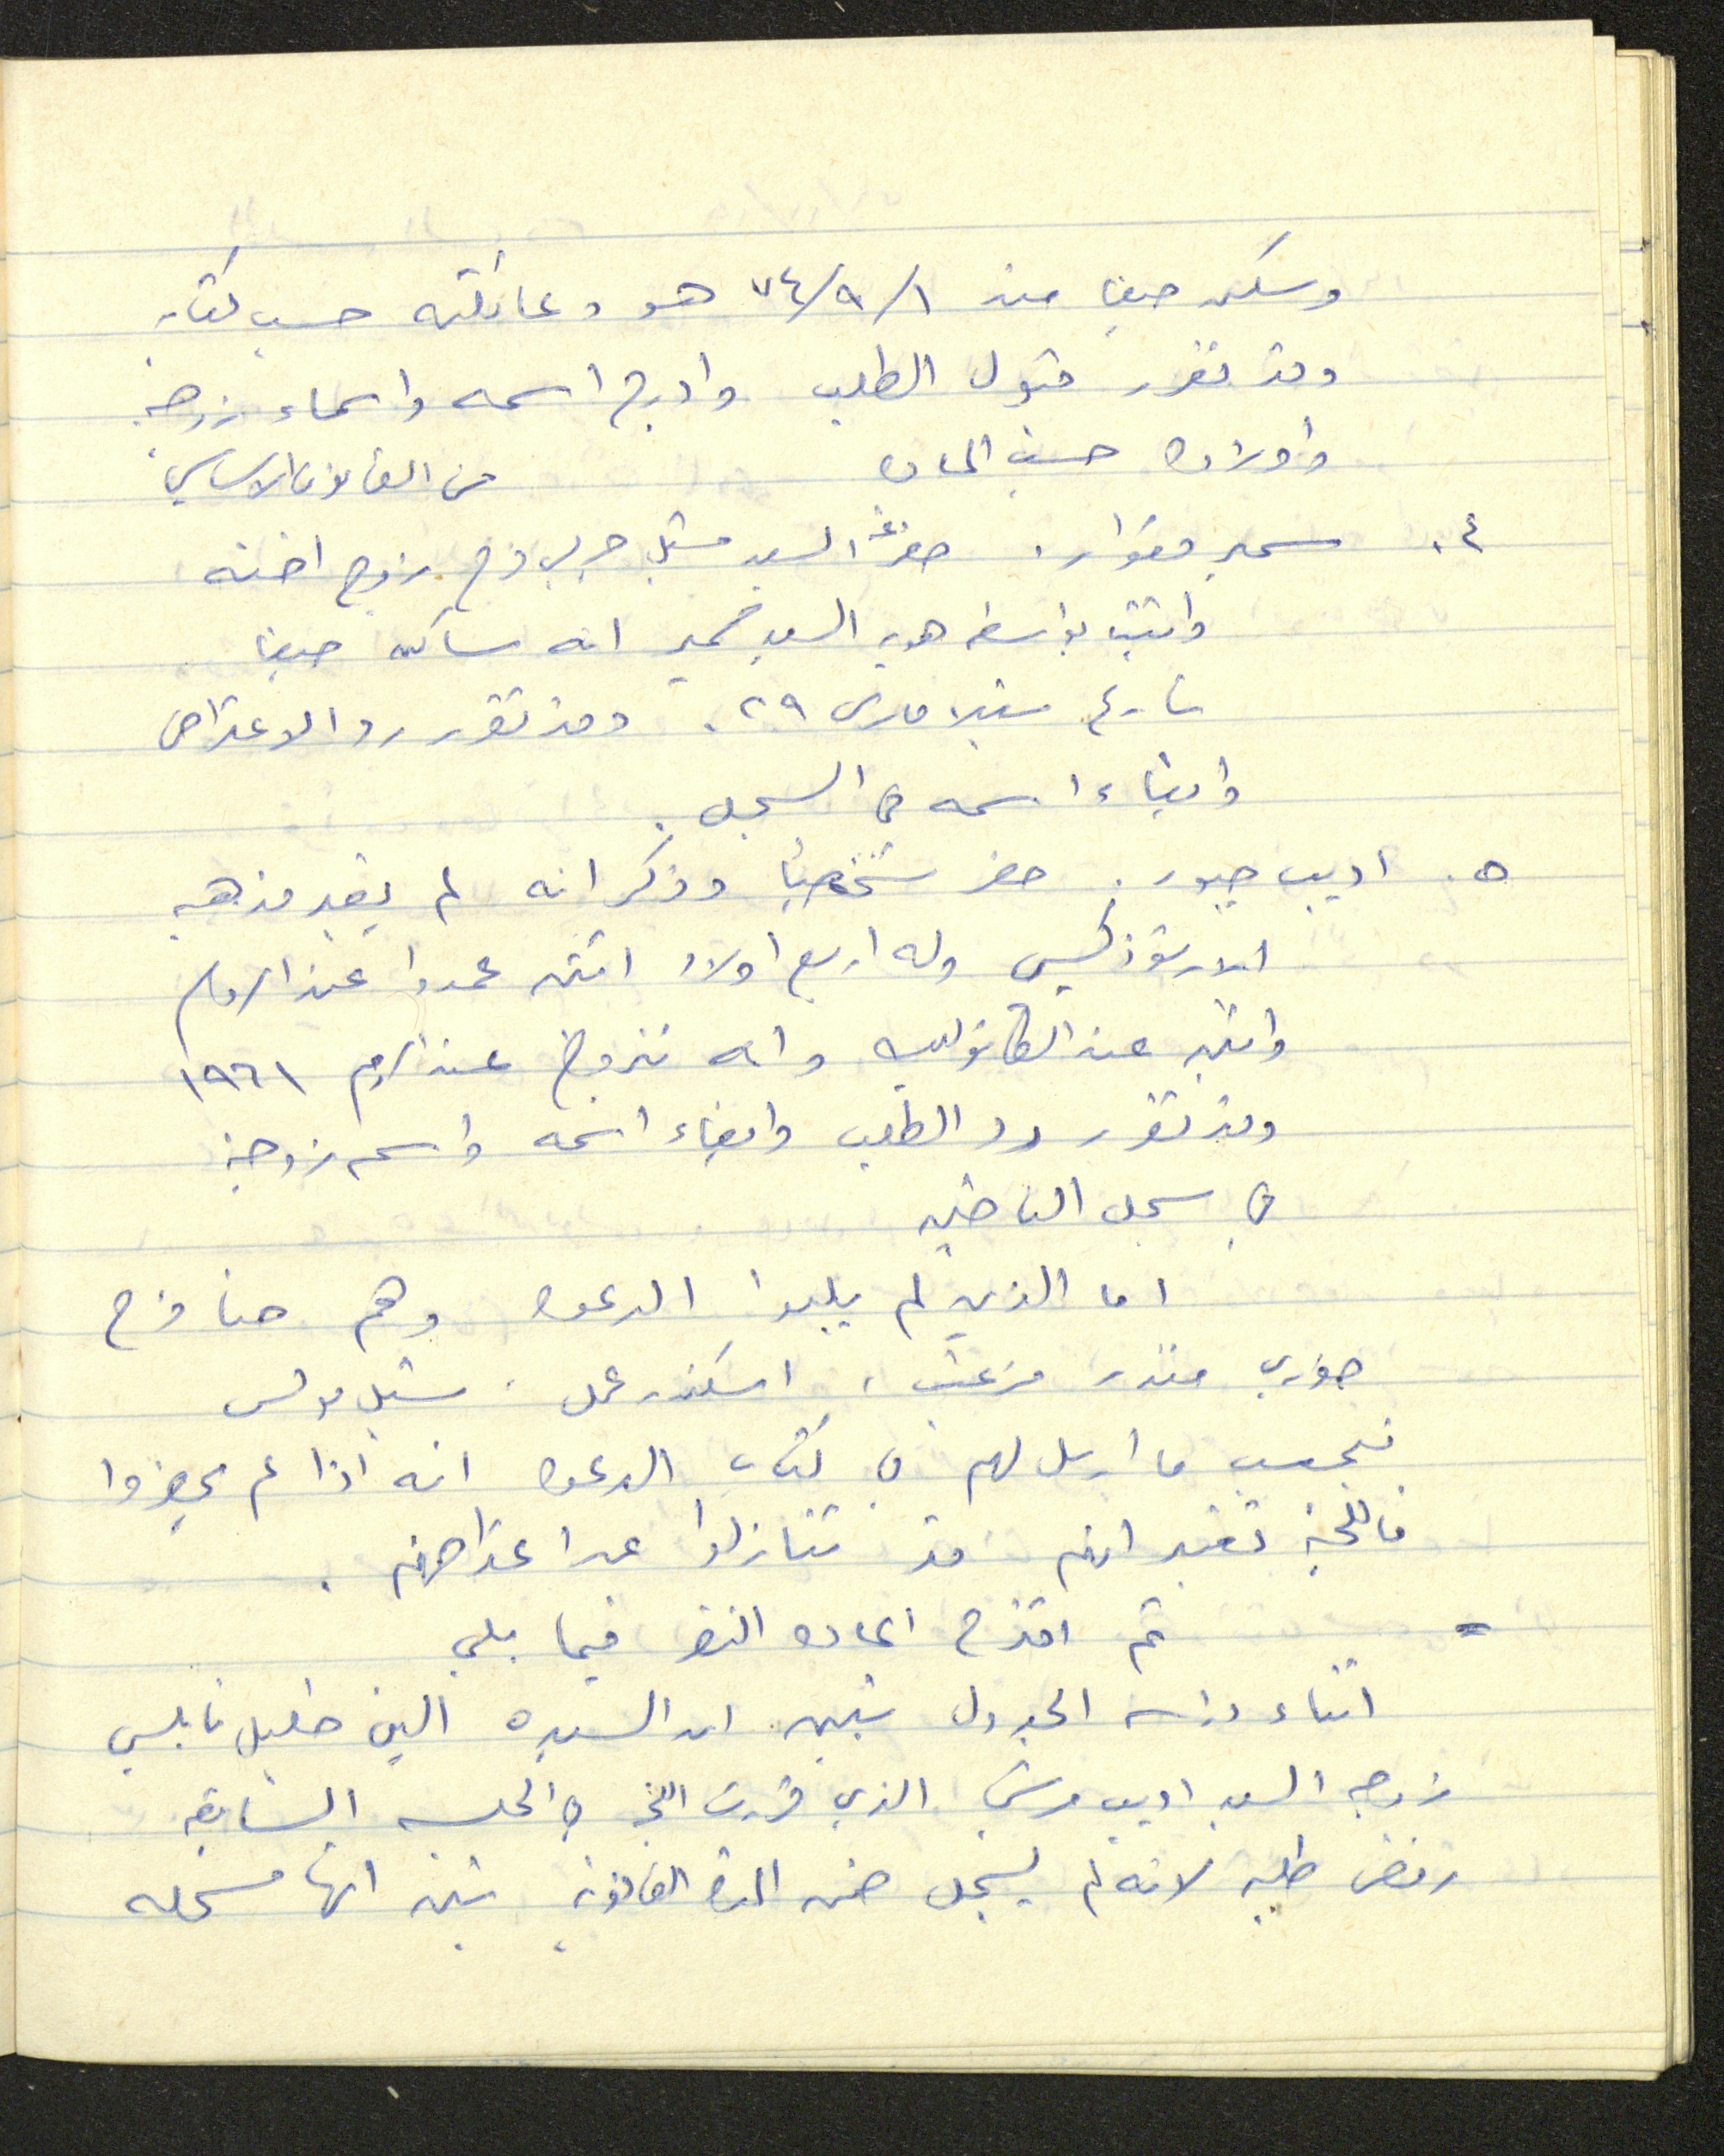 وسكن حيفا منذ ٧٤/٩/١ هو وعائلته حسب كتابه
وقد تقرر قبول الطلب وادرج اسمه واسماء زوجته
واولاده حسب الماده من القانون الاساسي
٤. سمير فوار. حضر السيد زوج اخته
واثبت بواسطة هوية السيد سمير انه ساكن حيفا
شارع ستيلا مارس ٢٩. وقد تقرر رد الاعتراض
وابقاء اسمه في السجل.
٥. اديب جبور. حضر شخصيًا وذكر انه لم يغير مذهبه
الارثوذكسي وله اربع اولاد اثنين عمدوا عند الروم
واثنين عند الكاثوليك وانه تزوج عند الروم ١٩٦١
وقد تقرر رد الطلب وابقاء اسمه واسم زوجته
في سجل الناخبين
اما الذين لم يلبوا الدعوه وهم حنا فرح
اسكندر عمل. شبل بولس
فبحسب ما ارسل لهم في كتاب الدعوه انه اذا لم يحضروا
فاللجنة تعتبر انهم قد تنازلوا عن اعتراضهم.
= ثم اقترح اعادة النظر فيما يلي
اثناء دراسة الجدول تبين ان السيده الين خليل نابلسي
زوجة السيد اديب الذي قررت اللجنة في الجلسه السابقه
رفض طلبه لانه لم يسجل ضمن المدة القانونية تبين انها مسجله